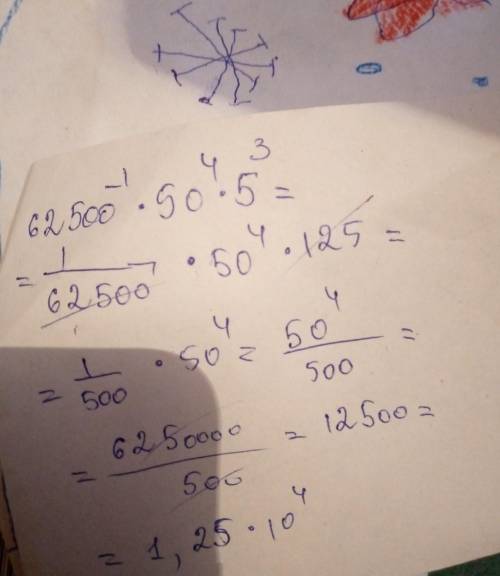 62500⁻¹ · 50⁴ · 5³ =
= 1/62500 · 50⁴ · 125 =
= 1/500 · 50⁴ = 50⁴/500 =
= 6250000/500 = 12500 =
= 1,25 · 10⁴